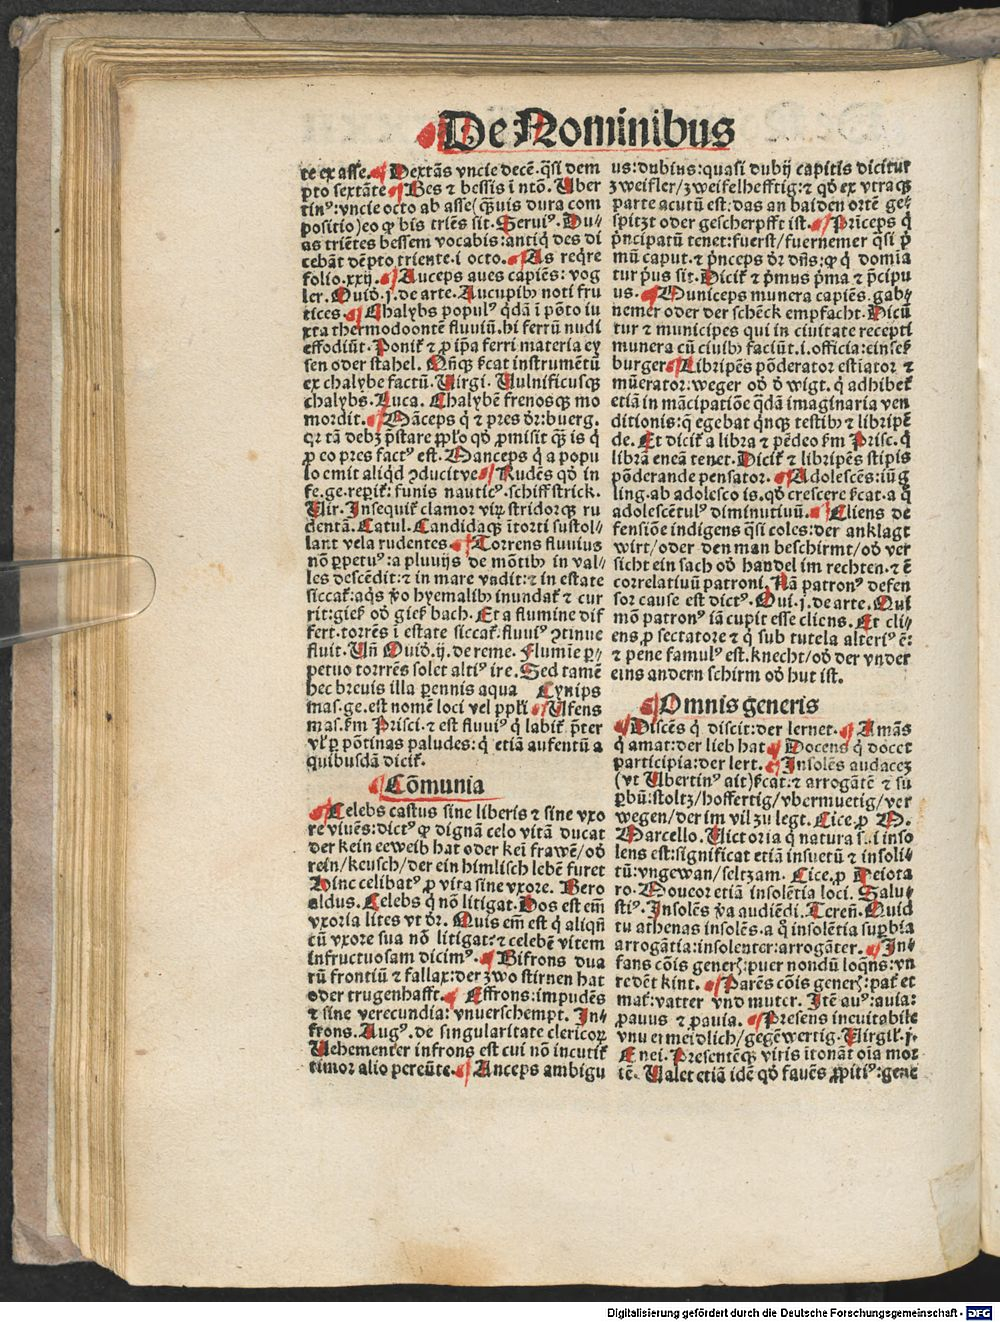 De Nominibus
te ex asse. Dextãs vncie decẽ. q̃si dem
pto sextãte Bes ⁊ bessis ĩ ntõ. Uber
tinꝰ: vncie octo ab asse (q̃uis dura com
positio) eo ꝙ bis triẽs sit. Seruiꝰ. Du⸗
as triẽtes bessem vocabis: antiq̇ des di
cebãt dẽpto triente. i octo. As req̇re
folio. xxij. Auceps aues capiẽs: vog
ler. Ouid̾. j. de arte. Aucupibꝰ noti fru
tices. Chalybs populꝰ q̃dã i põto iu
xta thermodoontẽ fluuiũ. hi ferrũ nudi
effodiũt. Ponit̃ ⁊ ꝓ ip̃a ferri materia ey
sen oder stahel. Vñq̃ẜcat instrumẽtũ
ex chalybe factũ. Uirgi. Uulnificusq̃
chalybs. Luca. Chalybẽ frenosq̃ mo
mordit. Mãceps q̇ ⁊ pres dr̃: buerg.
qꝛ tã debꝫ p̃stare ꝓplo qd̾ ꝓmisit q̃ is q̇
ꝓ eo pres factꝰ est. Manceps q̇ a popu
lo emit aliqd ꝯducitve Rudẽs qd̾ in
fe. ge. reperit̃: funis nauticꝰ. schiff strick.
Uir. Insequit̃ clamor virꝫ stridorq̃ ru
dentũ. Catul. Candidaq̃ ĩtorti sustol⸗
lant vela rudentes. Torrens fluuius
nõ ꝑpetuꝰ: a pluuijs de mõtibꝰ in val⸗
les descẽdit: ⁊ in mare vadit: ⁊ in estate
siccat̃: aq̃s v̾o hyemalibꝰ inundat̃ ⁊ cur
rit: gieß od̾ gieß bach. Et a flumine dif
fert. torrẽs ĩ estate siccat̃: fluuiꝰ ꝯtinue
fluit. Uñ Ouid̾. ij. de reme. Flumĩe ꝑ⸗
petuo torrẽs solet altiꝰ ire. Sed tamẽ
hec breuis illa ꝑennis aqua Cynips
mas. ge. est nomẽ loci vel ppli Ufens
mas. ẜm Prisci. ⁊ est fluuiꝰ q̇ labit̃ p̃ter
vl̾ ꝑ põtinas paludes: q̇ etiã aufentũ a
quibusdã dicit̃.
Cõmunia
Celebs castus sine liberis ⁊ sine vxo
re viuẽs: dictꝰ ꝙ dignã celo vitã ducat
der kein eeweib hat oder keĩ frawẽ / od̾
rein / keusch / der ein himlisch lebẽ furet
Hinc celibatꝰ ꝓ vita sine vxore. Bero
aldus. Celebs q̇ nõ litigat. Dos est em̃
vxoria lites vt dr̃. Quis em̃ est q̇ aliqñ
cũ vxore sua nõ litigat: ⁊ celebẽ vitem
infructuosam dicimꝰ. Bifrons dua
rũ frontiũ ⁊ fallax: der zwo stirnen hat
oder trugenhafft. Effrons: impudẽs
⁊ sine verecundia: vnuerschempt. In⸗
frons. Augꝰ. de singularitate clericoꝝ
Uehementer infrons est cui nõ incutit̃
timor alio pereũte. Anceps ambigu
us: dubius: quasi dubij capitis dicitur
zweifler / zweifelhefftig: ⁊ qd̾ ex vtraq̃
parte acutũ est: das an baiden ortẽ ge⸗
spitzt oder gescherpfft ist. Prĩceps q̇
p̃ncipatũ tenet: fuerst / fuernemer q̃si p̾
mũ caput. ⁊ p̃nceps dr̃ dñs: ꝙ q̇ domĩa
tur p̾us sit. Dicit̃ ⁊ p̾mus p̾ma ⁊ p̃cipu
us. Municeps munera capiẽs. gab⸗
nemer oder der schẽck empfacht. Dicũ
tur ⁊ municipes qui in ciuitate recepti
munera cũ ciuibꝰ faciũt. i. officia: einseß
burger Libripẽs põderator estiator ⁊
mũerator: weger od̾ d̾ wigt. q̇ adhibet̃
etiã in mãcipatiõe q̃dã imaginaria ven
ditionis: q̇ egebat q̇nq̃ testibꝰ ⁊ libripẽ
de. Et dicit̃ a libra ⁊ pẽdeo ẜm Prisc. q̇
librã eneã tenet. Dicit̃ ⁊ libripẽs stipis
põderande pensator. Adolescẽs: iũg
ling. ab adolesco is. qd̾ crescere ẜcat. a q̇
adolescẽtulꝰ diminutiuũ. Cliens de
fensiõe indigens q̃si coles: der anklagt
wirt / oder den man beschirmt / od̾ ver
sicht ein sach od̾ handel im rechten. ⁊ ẽ
correlatiuũ patroni. Nã patronꝰ defen
sor cause est dictꝰ. Oui. j. de arte. Qui
mõ patronꝰ iã cupit esse cliens. Et cli⸗
ens ꝓ sectatore ⁊ q̇ sub tutela alteriꝰ ẽ:
⁊ pene famulꝰ est. knecht / od̾ der vnder
eins andern schirm od̾ hut ist.
Omnis generis
Discẽs q̇ discit: der lernet. Amãs
q̇ amat: der lieb hat Docens q̇ docet
participia: der lert. Insolẽs audacez
(vt Ubertinꝰ ait) ẜcat: ⁊ arrogãtẽ ⁊ su
ꝑbũ: stoltz / hoffertig / vbermuetig / ver
wegen / der im vil zu legt. Cice. ꝓ M.
Marcello. Uictoria q̇ natura s..i inso
lens est: significat etiã insuetũ ⁊ insoli⸗
tũ: vngewan / seltzam. Cice. ꝓ Deiota
ro. Moueor etiã insolẽtia loci. Salu⸗
stiꝰ. Insolẽs v̾a audiẽdi. Tereñ. Quid
tu athenas insolẽs. a q̇ insolẽtia suꝑbia
arrogãtia: insolenter: arrogãter. In⸗
fans cõis gener̃: puer nondũ loq̃ns: vn
redẽt kint. Parẽs cõis gener̃: pat̃ et
mat̃: vatter vnd muter. Itẽ auꝰ: auia:
ꝓauus ⁊ ꝓauia. Presens ineuitabile
vnuermeidlich / gegẽwertig. Uirgil. j.
Enei. Presentẽq̃ viris ĩtonãt oĩa mor
tẽ. Ualet etiã idẽ qd̾ fauẽs ꝓpitiꝰ: gene
Digitalisierung gefördert durch die Deutsche Forschungsgemeinschaft - DFG